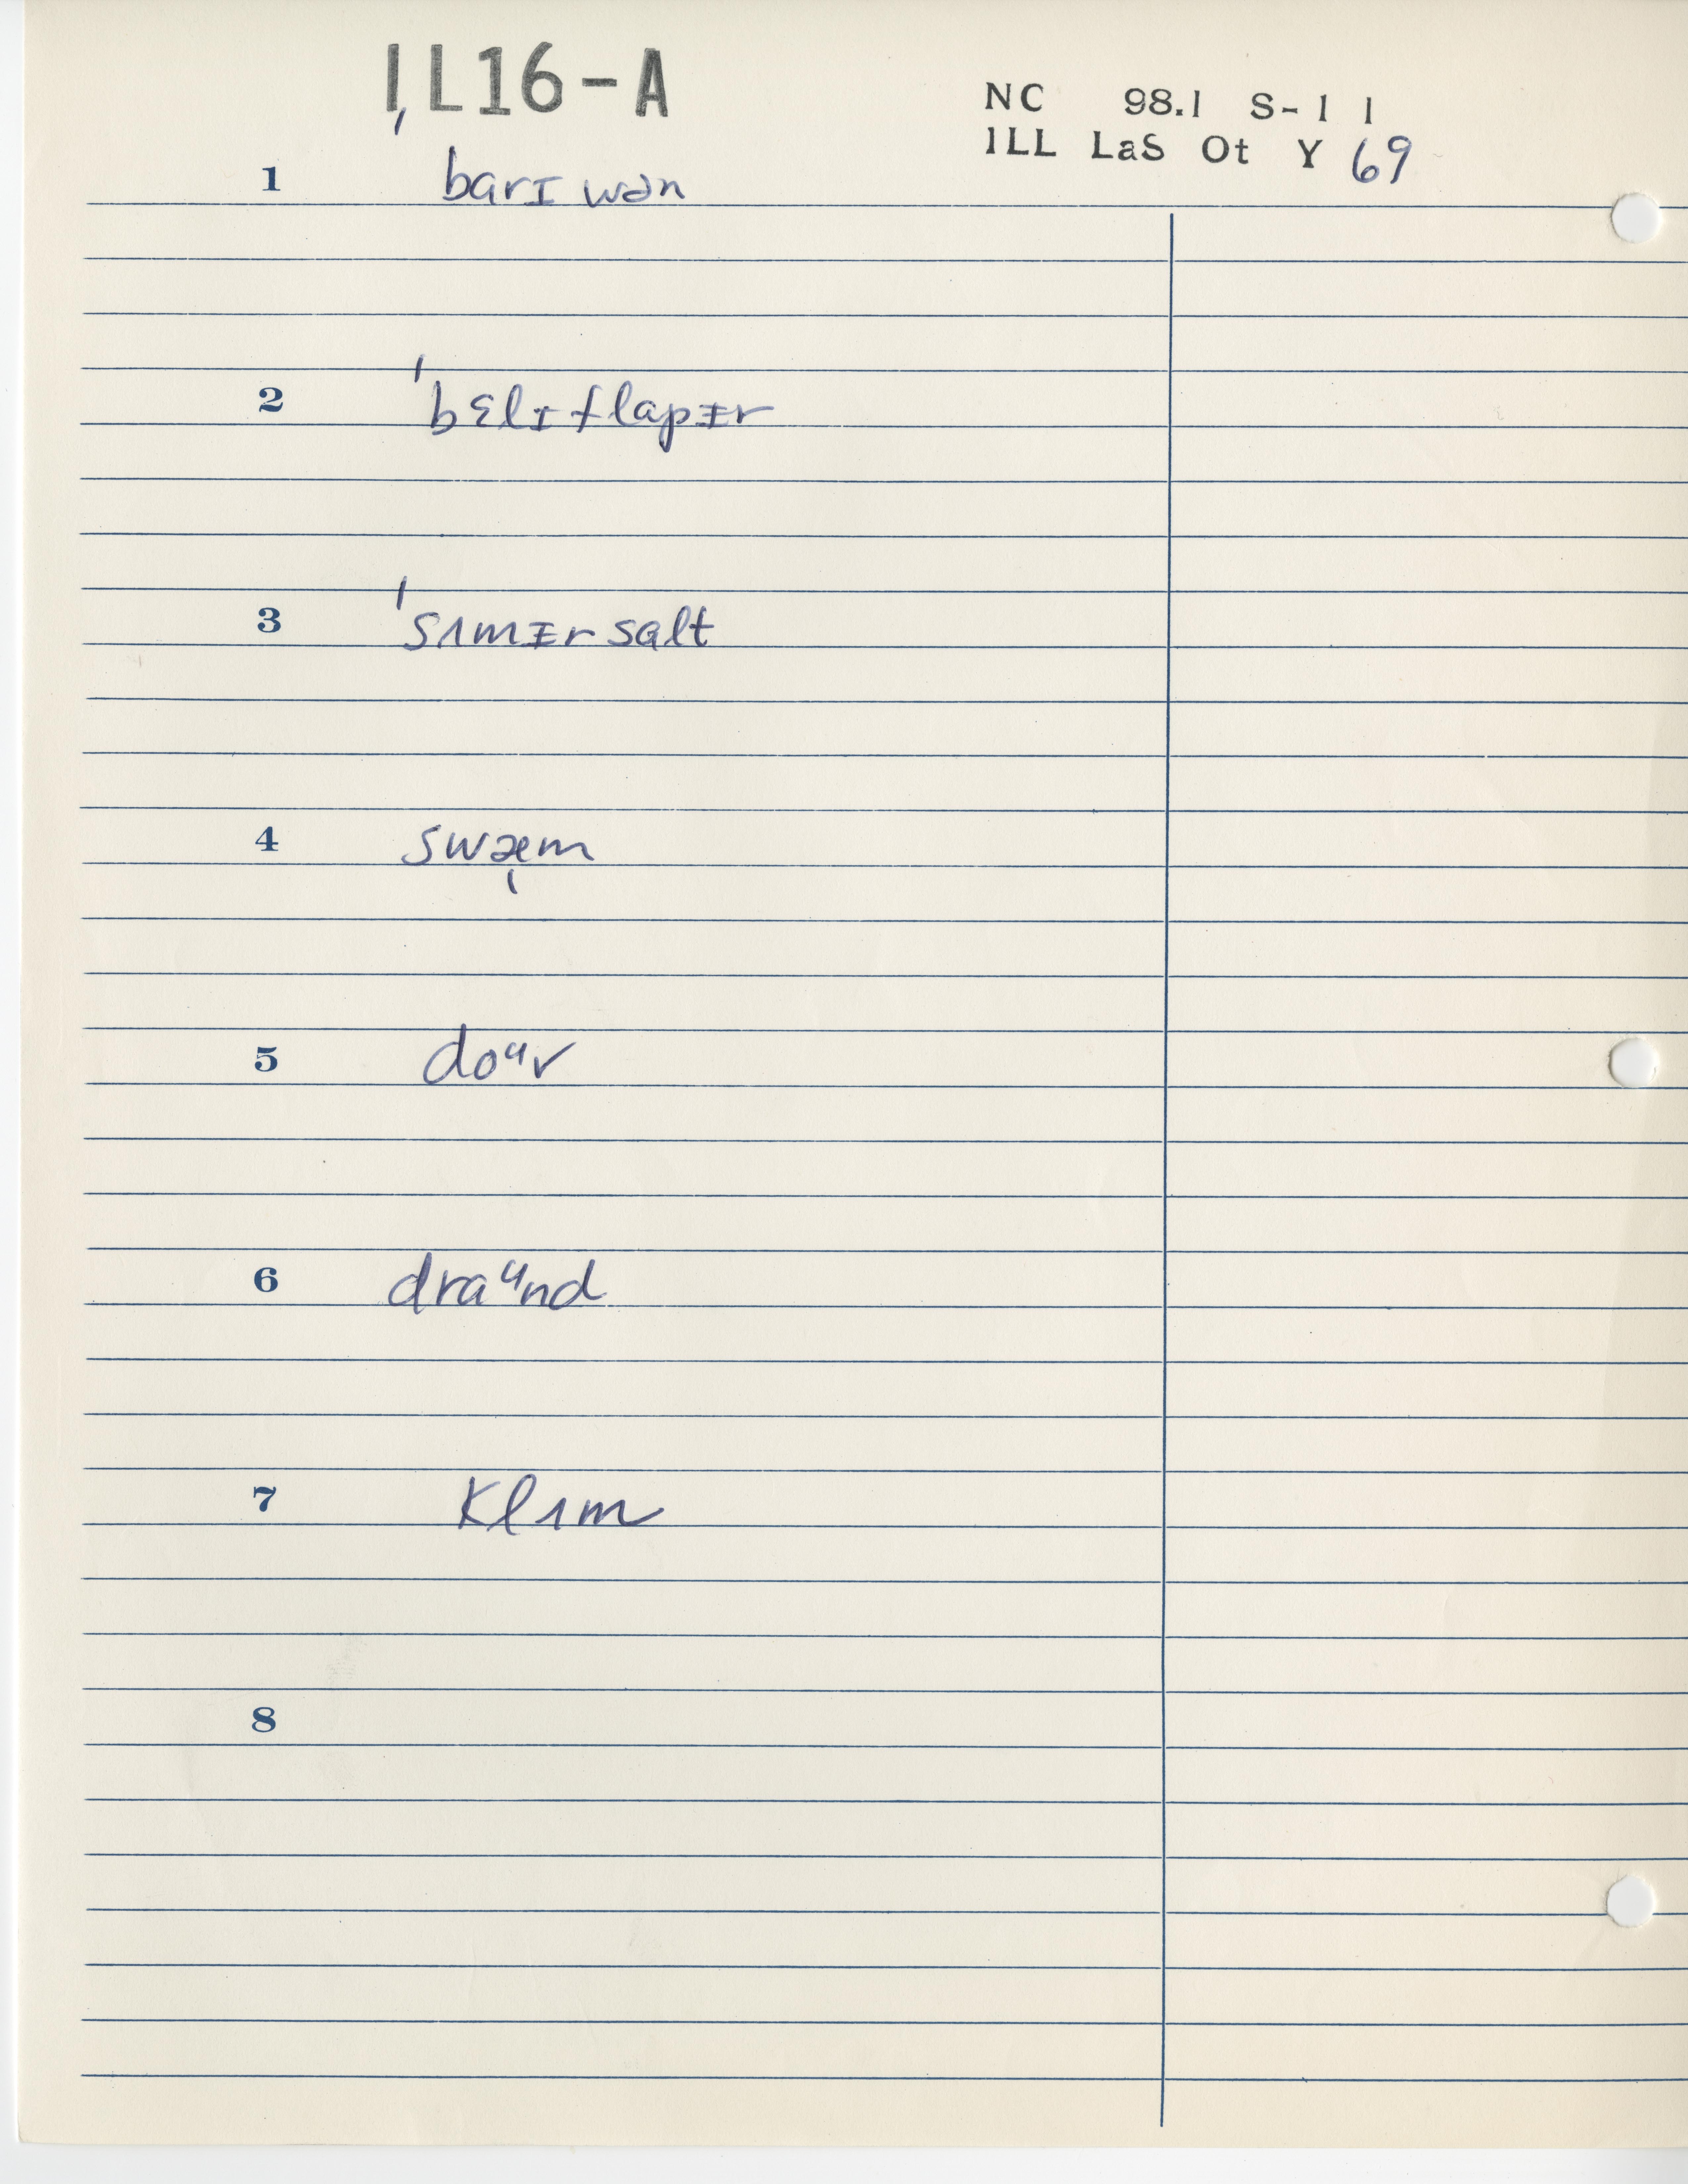 IL16-A
NC 98.1 S-1 1
ILL LaS Ot Y 69
1 ˈbarɪ wən
2 ˈbɛlɪ flapᵻr
3 ˈsʌmᵻr salt
4 swæ̩m
5 doᵘv
6 draᵘnd
7 klʌm
8